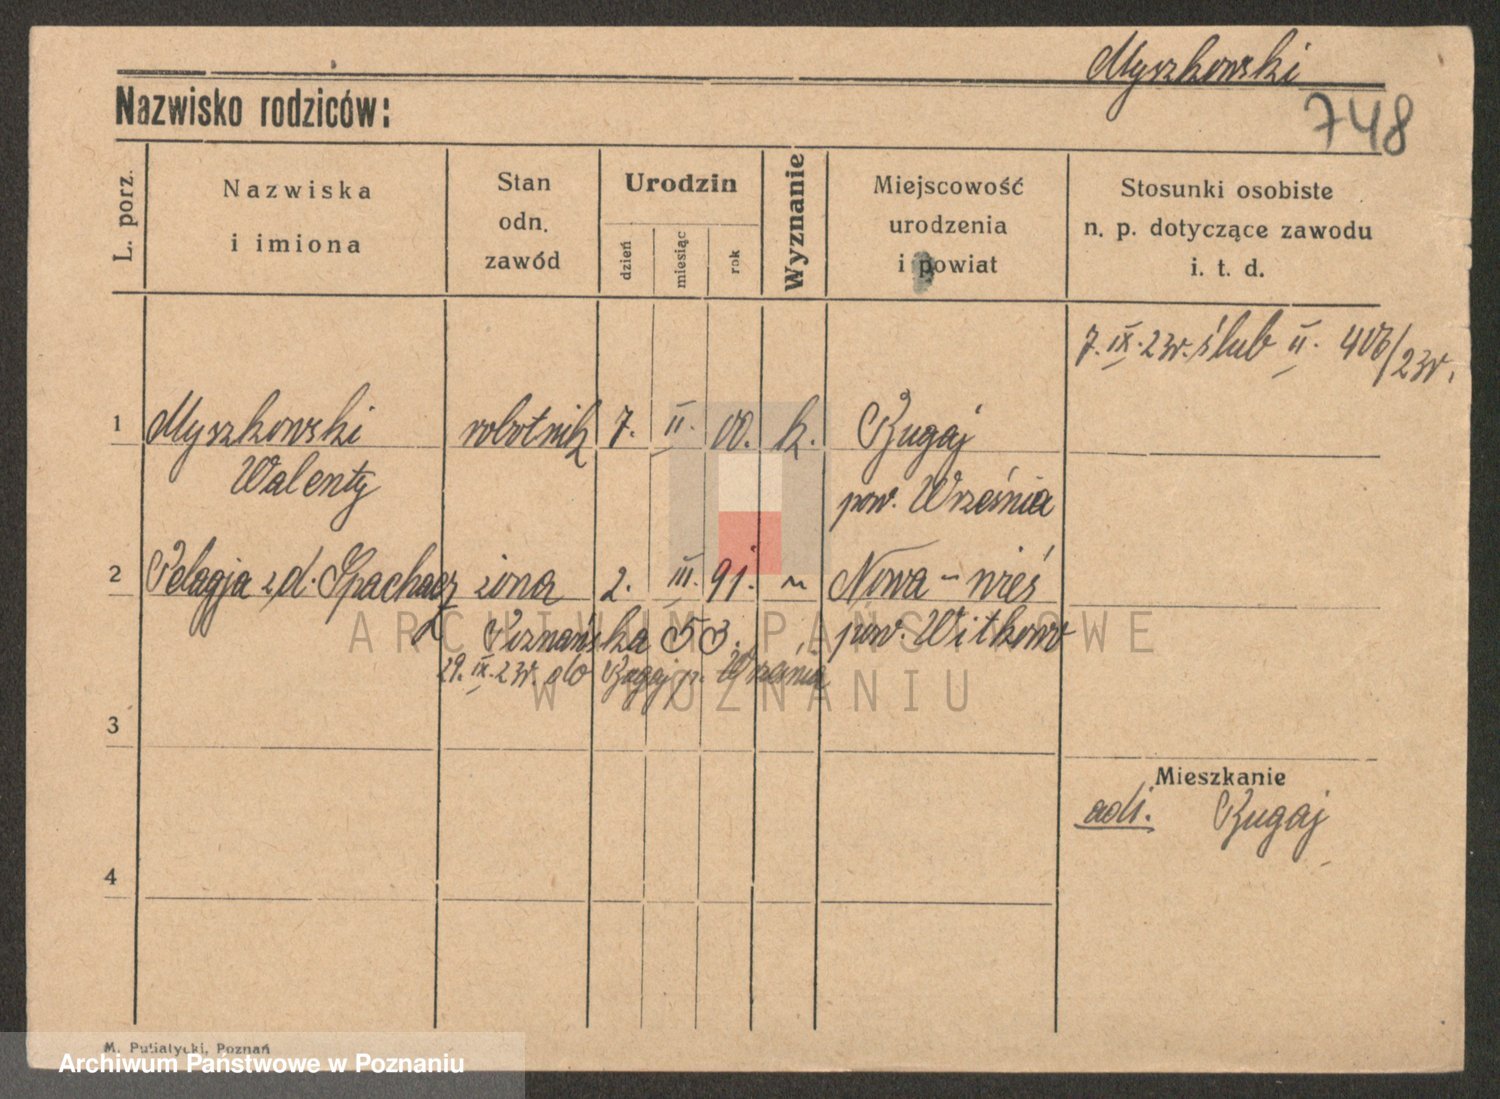 Myszkowski
Nazwisko rodziców:
748
L. porz.
Nazwiska
i imiona
Stan
odn.
zawód
Urodzin
dzień
miesiąc
rok
Wyznanie
Miejscowość
urodzenia
i powiat
Stosunki osobiste
n. p. dotyczące zawodu
i. t. d.
7. IX. 23r. ślub II. 406/23r.
1 Myszkowski robotnik 7. II. 00. k. Bugaj
Walenty pow. Września
2 Pelagja z d. Spachacz żona 2. III. 91. " Nowa-wieś
Poznańska 53. pow. Witkowo
29. IX. 23r. do Bugaj p. Września
3
Mieszkanie
Bugaj
4
ARCHIWUM PAŃSTWOWE
W POZNANIU
M. Putiatycki, Poznań
Archiwum Państwowe w Poznaniu